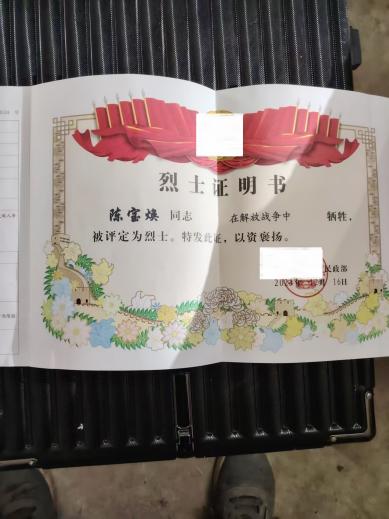 烈士证明书
陈宝焕 同志 在解放战争中 牺牲，
被评定为烈士。特发此证，以资褒扬。
民政部
月 16日